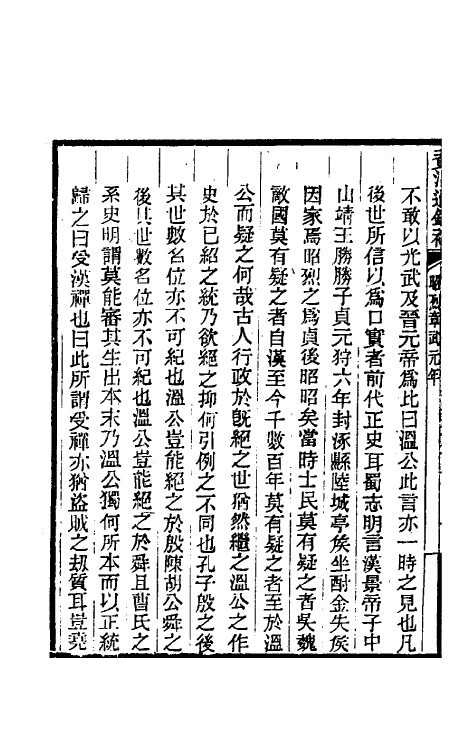 資治通鑑補
昭烈章武元年
不敢以光武及晉元帝爲比曰溫公此言亦一時之見也凡
後世所信以爲口實者前代正史耳蜀志明言漢景帝子中
山靖王勝勝子貞元狩六年封涿縣陸城亭矦坐酎金失矦
因家焉昭烈之爲貞後昭昭矣當時士民莫有疑之者吳魏
敵國莫有疑之者自漢至今千數百年莫有疑之者至於溫
公而疑之何哉古人行政於旣絕之世猶然繼之溫公之作
史於已紹之統乃欲絕之抑何引例之不同也孔子殷之後
其世數名位亦不可紀也溫公豈能絕之於殷陳胡公舜之
後其世數名位亦不可紀也溫公豈能絕之於舜且曹氏之
系史明謂莫能審其生出本末乃溫公獨何所本而以正統
歸之曰受漢禪也曰此所謂受禪亦猶盜賊之刼質耳豈堯